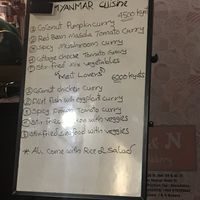 MYANMAR CUISINE
4500 kyats
① Coconut Pumpkin curry
② Red Bean Masala Tomato Curry
③ Spicy Mushroom curry
④ Cottage cheese Tomato curry
⑤ Stir-fried mix vegetables
"Meat Lovers" 6000 kyats
① Peanut chicken curry
② fish with eggplant curry
③ Spicy Prawn Tomato curry
④ Stir-fried with veggies
⑤ Stir-fried seafood with veggies
* ALL come with Rice & Salad
& N